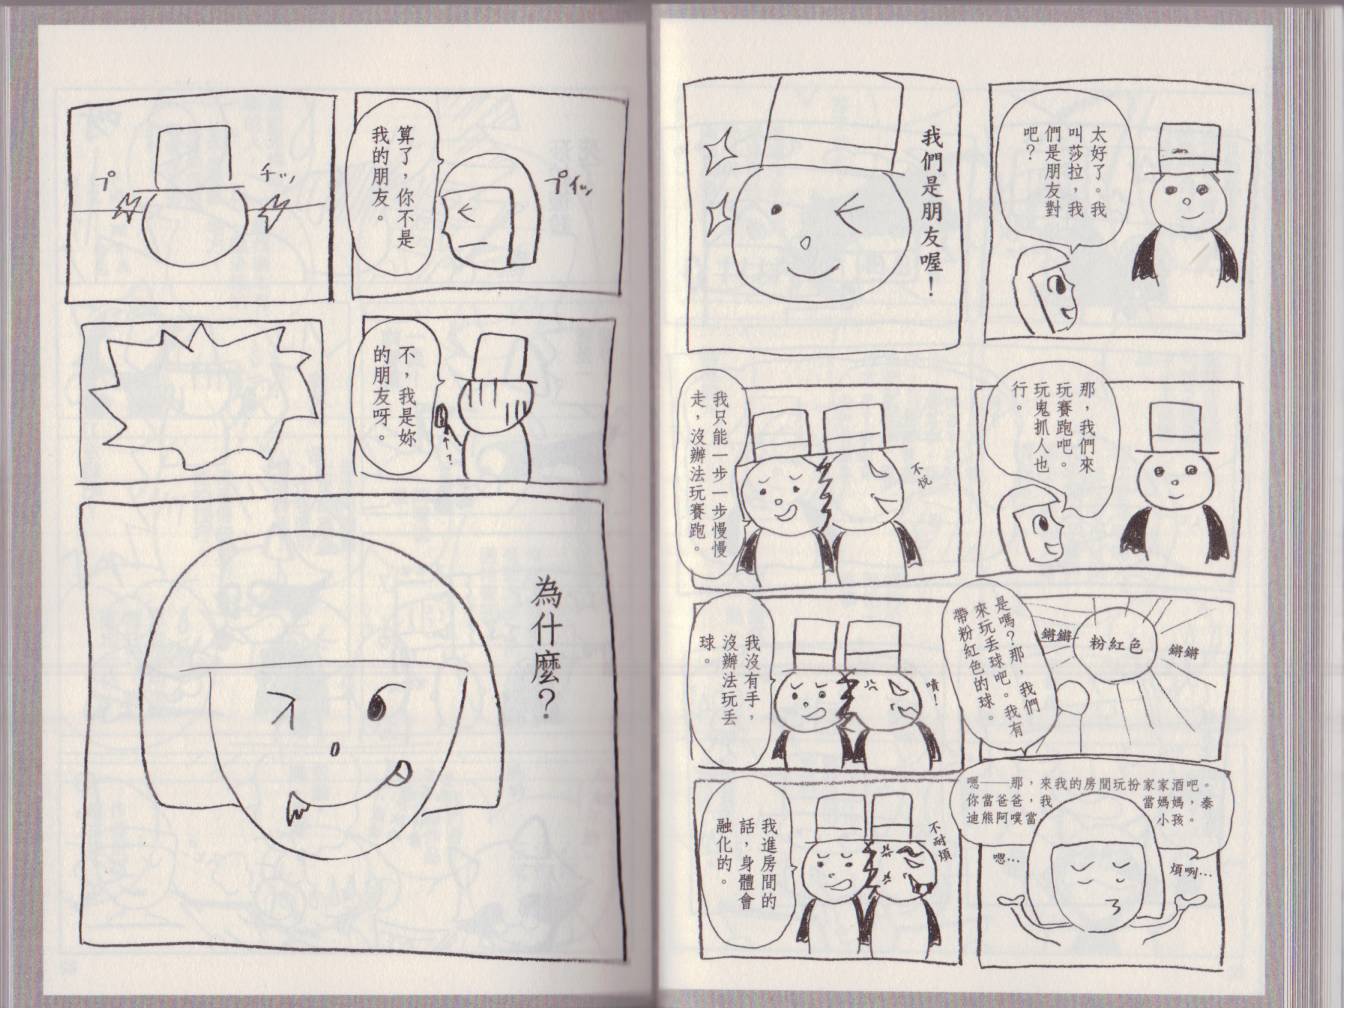 太好了。我
叫莎拉，我
們是朋友對
吧？
我們是朋友喔！
那，我們來
玩賽跑吧。
玩鬼抓人也
行。
不悅
我只能一步一步慢慢
走，沒辦法玩賽跑。
是嗎？那，我們
來玩丟球吧。我有
帶粉紅色的球。
鏘鏘
粉紅色
鏘鏘
嘖！
我沒有手，
沒辦法玩丟
球。
嗯——那，來我的房間玩扮家家酒吧。
你當爸爸，我當媽媽，泰
迪熊阿噗當小孩。
嗯…
煩咧…
不耐煩
我進房間的
話，身體會
融化的。
プイッ
算了，你不是
我的朋友。
チッ
プ
不，我是妳
的朋友呀。
?
為什麼？